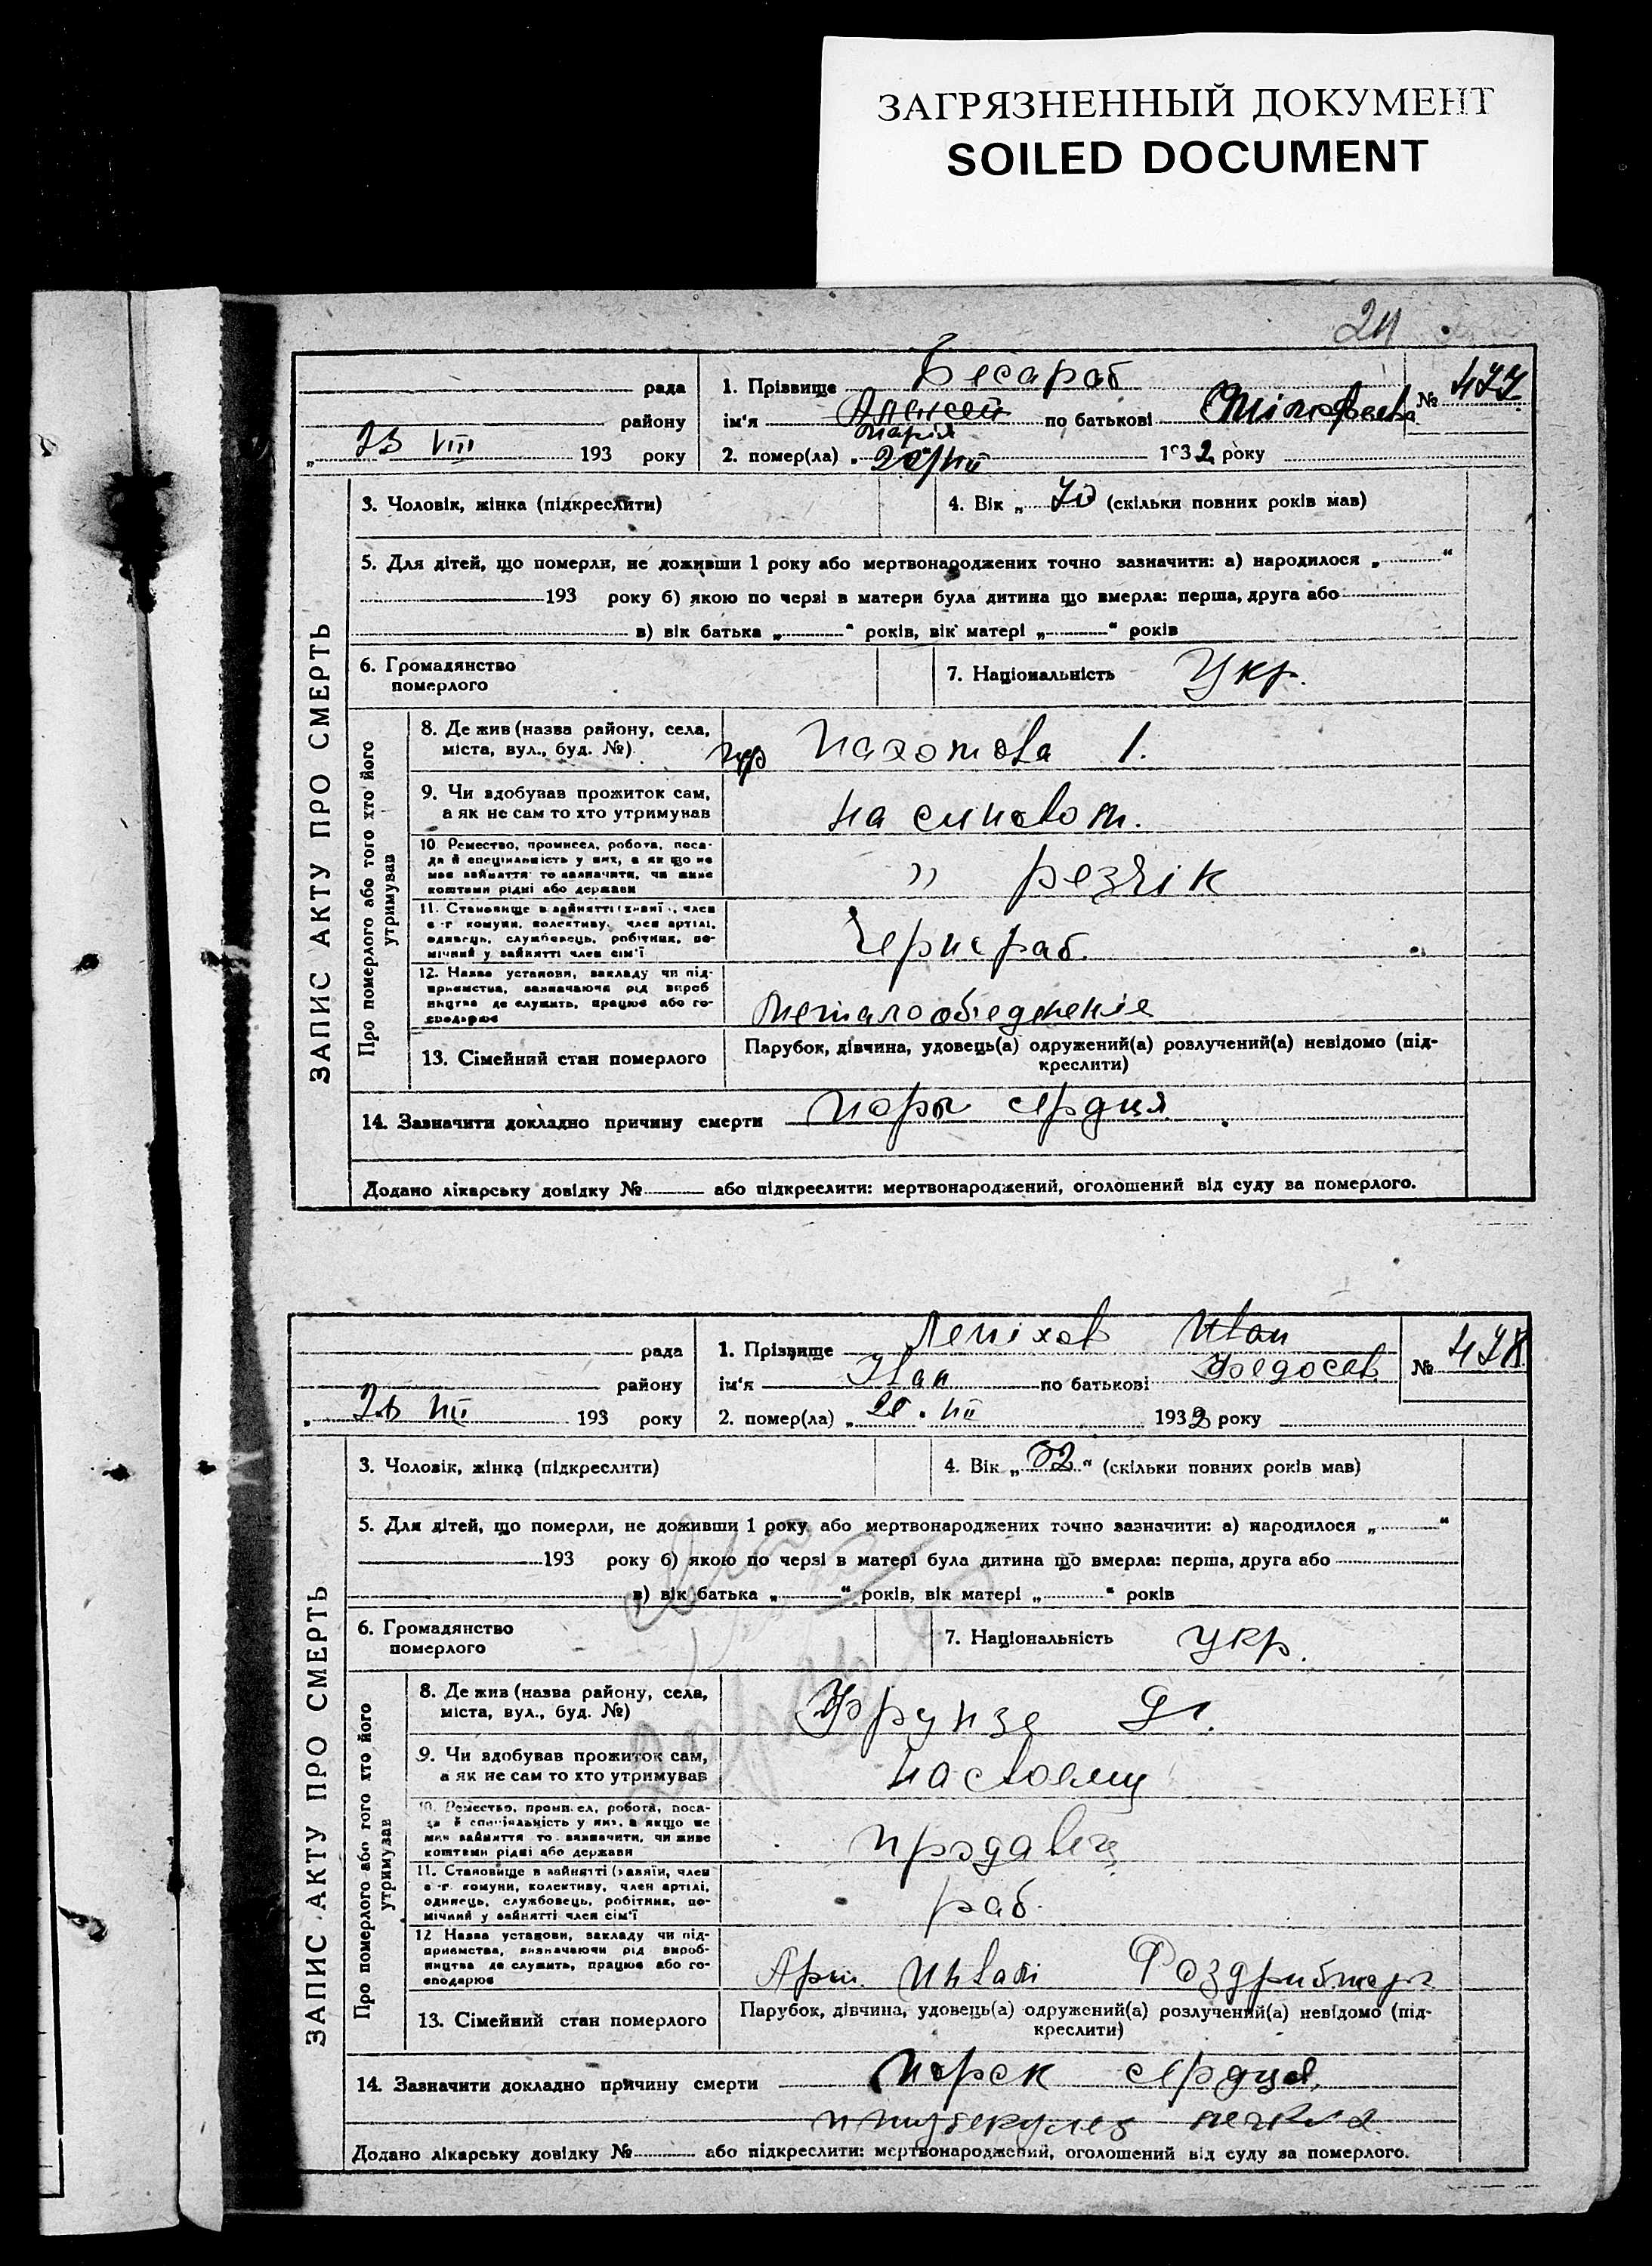 ЗАГРЯЗНЕННЫЙ ДОКУМЕНТ
SOILED DOCUMENT
24
рада
району
„ 23 VIII 193 року
1. Прізвище Бесараб
ім'я Алексей по батькові
Марія
2. помер(ла) „ 1932 року
№ 477
ЗАПИС АКТУ ПРО СМЕРТЬ
3. Чоловік, жінка (підкреслити)
4. Вік „ 70 (скільки повних років мав)
5. Для дітей, що померли, не доживши 1 року або мертвонароджених точно зазначити: а) народилося „ “
193 року б) якою по черзі в матери була дитина що вмерла: перша, друга або
в) вік батька „ “ років, вік матері „ “ років
6. Громадянство
померлого
7. Національність Укр.
Про померлого або того хто його
утримував
8. Де жив (назва району, села,
міста, вул., буд. №) Пахотова 1.
9. Чи здобував прожиток сам,
а як не сам то хто утримував
10 Ремество, промисел, робота, поса-
да й спеціяльність у них, а як що не
мав зайняття то зазначити, чи живе
коштами рідні або держави
" резчік
11. Становище в зайнятті (хазяї, член
с-г комуни, колективу, член артілі,
одинець, службовець, робітник, по-
мічний у зайнятті член сім'ї
Чернораб.
12. Назва установи, закладу чи під-
приємства, зазначаючи рід вироб
ництва де служить, працює або го-
сподарює
Металообіеднення
13. Сімейний стан померлого
Парубок, дівчина, удовець(а) одружений(а) розлучений(а) невідомо (під-
креслити)
14. Зазначити докладно причину смерти сердця
Додано лікарську довідку № або підкреслити: мертвонароджений, оголошений від суду за померлого.
рада
району
„ 23 VIII 193 року
1. Прізвище Лепіхов Иван
ім'я Иван по батькові Федосев
2. помер(ла) „ 1932 року
№ 478
ЗАПИС АКТУ ПРО СМЕРТЬ
3. Чоловік, жінка (підкреслити)
4. Вік „ 52 “ (скільки повних років мав)
5. Для дітей, що померли, не доживши 1 року або мертвонароджених точно зазначити: а) народилося „ “
193 року б) якою по черзі в матері була дитина що вмерла: перша, друга або
в) вік батька „ “ років, вік матері „ “ років
6. Громадянство
померлого
7. Національність укр.
Про померлого або того хто його
утримував
8. Де жив (назва району, села,
міста, вул., буд. №) Фрунзе 91.
9. Чи здобував прожиток сам,
а як не сам то хто утримував
на своему
10. Ремество, промисел, робота, поса-
да й спеціяльність у них, а якщо не
мав зайняття то зазначити, чи живе
коштами рідні або держави
продавец
11. Становище в зайнятті (хазяїн, член
с-г. комуни, колективу, член артілі,
одинець, службовець, робітник, по-
мічний у зайнятті член сім'ї
раб.
12 Назва установи, закладу чи під-
приємства, визначаючи рід вироб-
ництва де служить, працює або го-
сподарює
Арт. Инвалі
13. Сімейний стан померлого
Парубок, дівчина, удовець(а) одружений(а) розлучений(а) невідомо (під-
креслити)
14. Зазначити докладно причину смерти порок сердця,
и туберкулез
Додано лікарську довідку № або підкреслити: мертвонароджений, оголошений від суду за померлого.